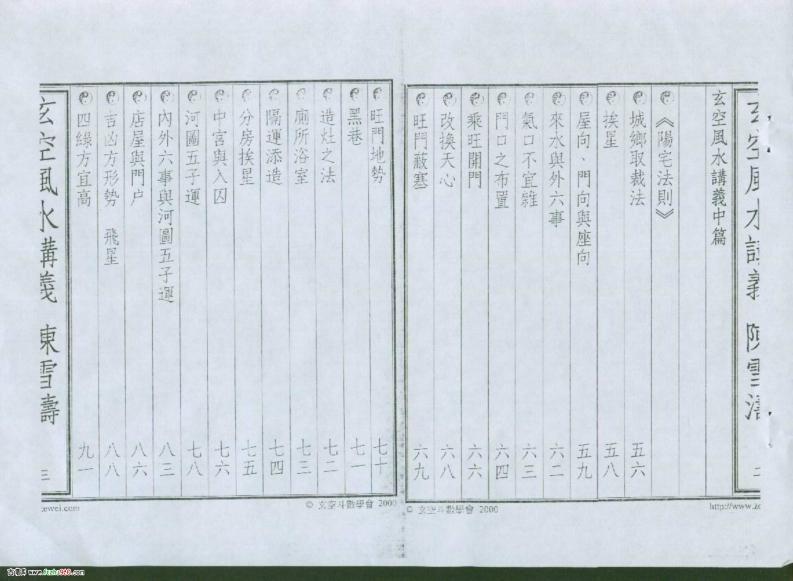 玄空風水講義中篇
《陽宅法則》
城鄉取裁法 五六
挨星 五八
屋向、門向與座向 五九
來水與外六事 六二
氣口不宜雜 六三
門口之布置 六四
乘旺開門 六六
改換天心 六八
旺門蔽塞 六九
© 玄空斗數學會 2000
旺門地勢 七十
黑巷 七一
造灶之法 七二
廁所浴室 七三
隔運添造 七四
分房挨星 七五
中宮與入囚 七六
河圖五子運 七八
內外六事與河圖五子運 八三
店屋與門户 八六
吉凶方形勢 飛星 八八
四綠方宜高 九一
玄空風水講義
© 玄空斗數學會 2000